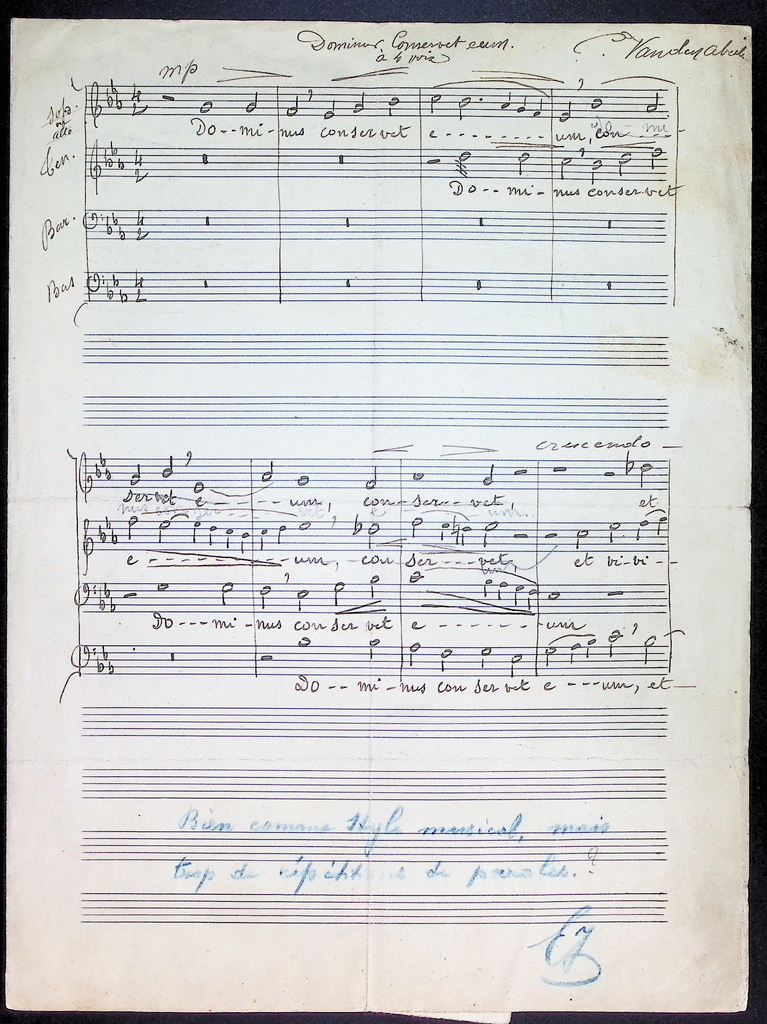 Dominus Conservet eum.
à 4 voix
Vandenabeele
mp
Sop. ou alto
Do--mi-nus conservet e-------um, con
Ten.
Do--mi-nus conservet
Bar.
Bas
crescendo
servet e---um, con-ser--vet, et
e--------um, con ser---vet, et vi-vi-
Do---mi-nus conservet e------um
Do--mi-nus conservet e---um, et
Bien comme style musical, mais
trop de répétitions de paroles.